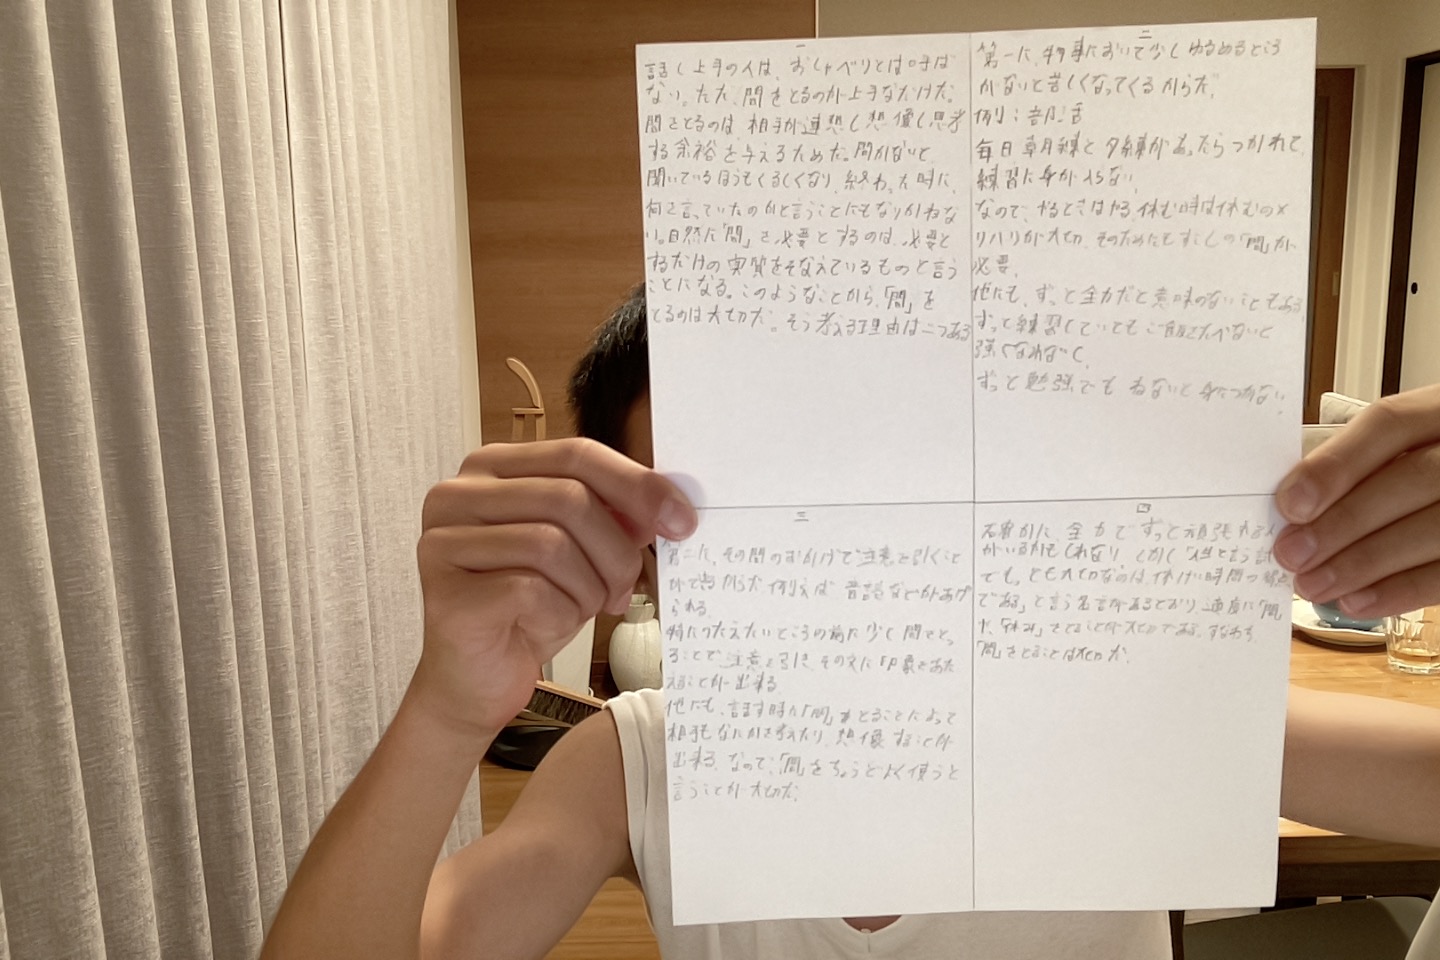 一
話し上手の人は、おしゃべりとは呼ば
ない。ただ、間をとるのが上手なだけだ。
間をとるのは、相手が連想し想像し思考
する余裕を与えるためだ。間がないと
聞いているほうもくるしくなり、終わった時に、
何を言っていたのかと言うことにもなりかねな
い。自然に「間」を必要とするのは、必要と
するだけの実質をそなえているものと言う
ことになる。このようなことから、「間」を
とるのは大切だ。そう考える理由は二つある
二
第一に、物事において少しゆるめるところ
がないと苦しくなってくるからだ。
例:部活
毎日、朝練と夕練があったらつかれて、
練習に身が入らない。
なので、やるときはやる、休む時は休むのメ
リハリが大切、そのためにもすこしの「間」が
必要。
他にも、ずっと全力だと意味のないこともある。
ずっと練習していてもご飯をたべないと
強くなれないし、
ずっと勉強でもねないと身につかない。
三
第二に、その間のおかげで注意を引くこと
ができるからだ 例えば 昔話などがあげ
られる。
特につたえたいところの前に少し間をとっ
ることで、注意を引き、その文に印象をあた
えることが出来る
他にも、話す時に「間」をとることによって
相手もなにかを考えたり、想像することが
出来る。なので、「間」をちょうどよく使うと
言うことが大切だ。
四
確かに、全力でずっと頑張れる人
がいるかもしれない。しかし「人生と言う
でも、とも大切なのは、休けい時間の
である」と言う名言があるとおり、適度に「間」
や、「休み」をとることが大切である。すなわち、
「間」をとることは大切だ。